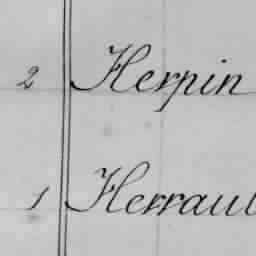 2 Herpin
1 Herraul